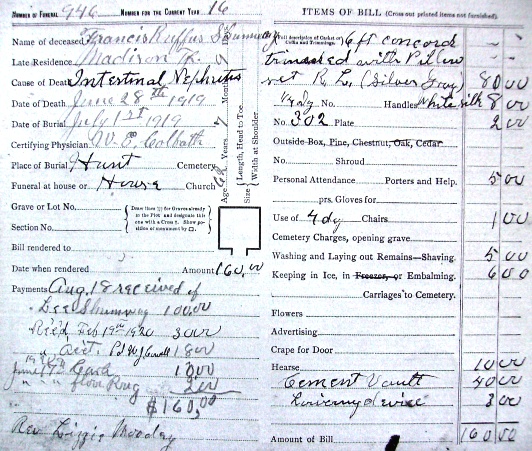 NUMBER OF FUNERAL 946 NUMBER FOR THE CURRENT YEAR 16
Name of deceased Francis Ruffus Shumway
Late Residence Madison
Cause of Death Intestinal Nephritis
Date of Death June 28th 1919
Date of Burial July 1st 1919
Certifying Physician W. E. Colbath
Place of Burial Hunt Cemetery
Funeral at house or House Church
Grave or Lot No.
Section No.
Draw lines for Graves already
to the Plot and designate this
one with a Cross. Show po-
sition of monument by
Bill rendered to
Date when rendered Amount 160.00
Payments Aug. 18 received of
Lee Shumway 100.00
Rec'd Feb 19th 1920 30 00
18 00
June 19th 10 00
" " floor Rug 2 00
$160,00
Rev Lizzie Moodey
Age Years Months
Size Length, Head to Toe.
Width at Shoulder
ITEMS OF BILL (Cross out printed items not furnished)
Full description of Casket or
Coffin and Trimmings. 6 ft concord
trimmed with Pillow
set R. L. (Silver Gray) 80 00
No. Handles White silk 8 00
No. 302 Plate 2 00
Outside-Box, Pine, Chestnut, Oak, Cedar
No. Shroud
Personal Attendance Porters and Help. 5 00
prs. Gloves for
Use of 4 dy Chairs 1 00
Cemetery Charges, opening grave
Washing and Laying out Remains—Shaving. 5 00
Keeping in Ice, in Freezer, or Embalming. 6 00
Carriages to Cemetery.
Flowers
Advertising
Crape for Door
Hearse 10 00
Cement Vault 40 00
Lowering device 3 00
Amount of Bill 160 00